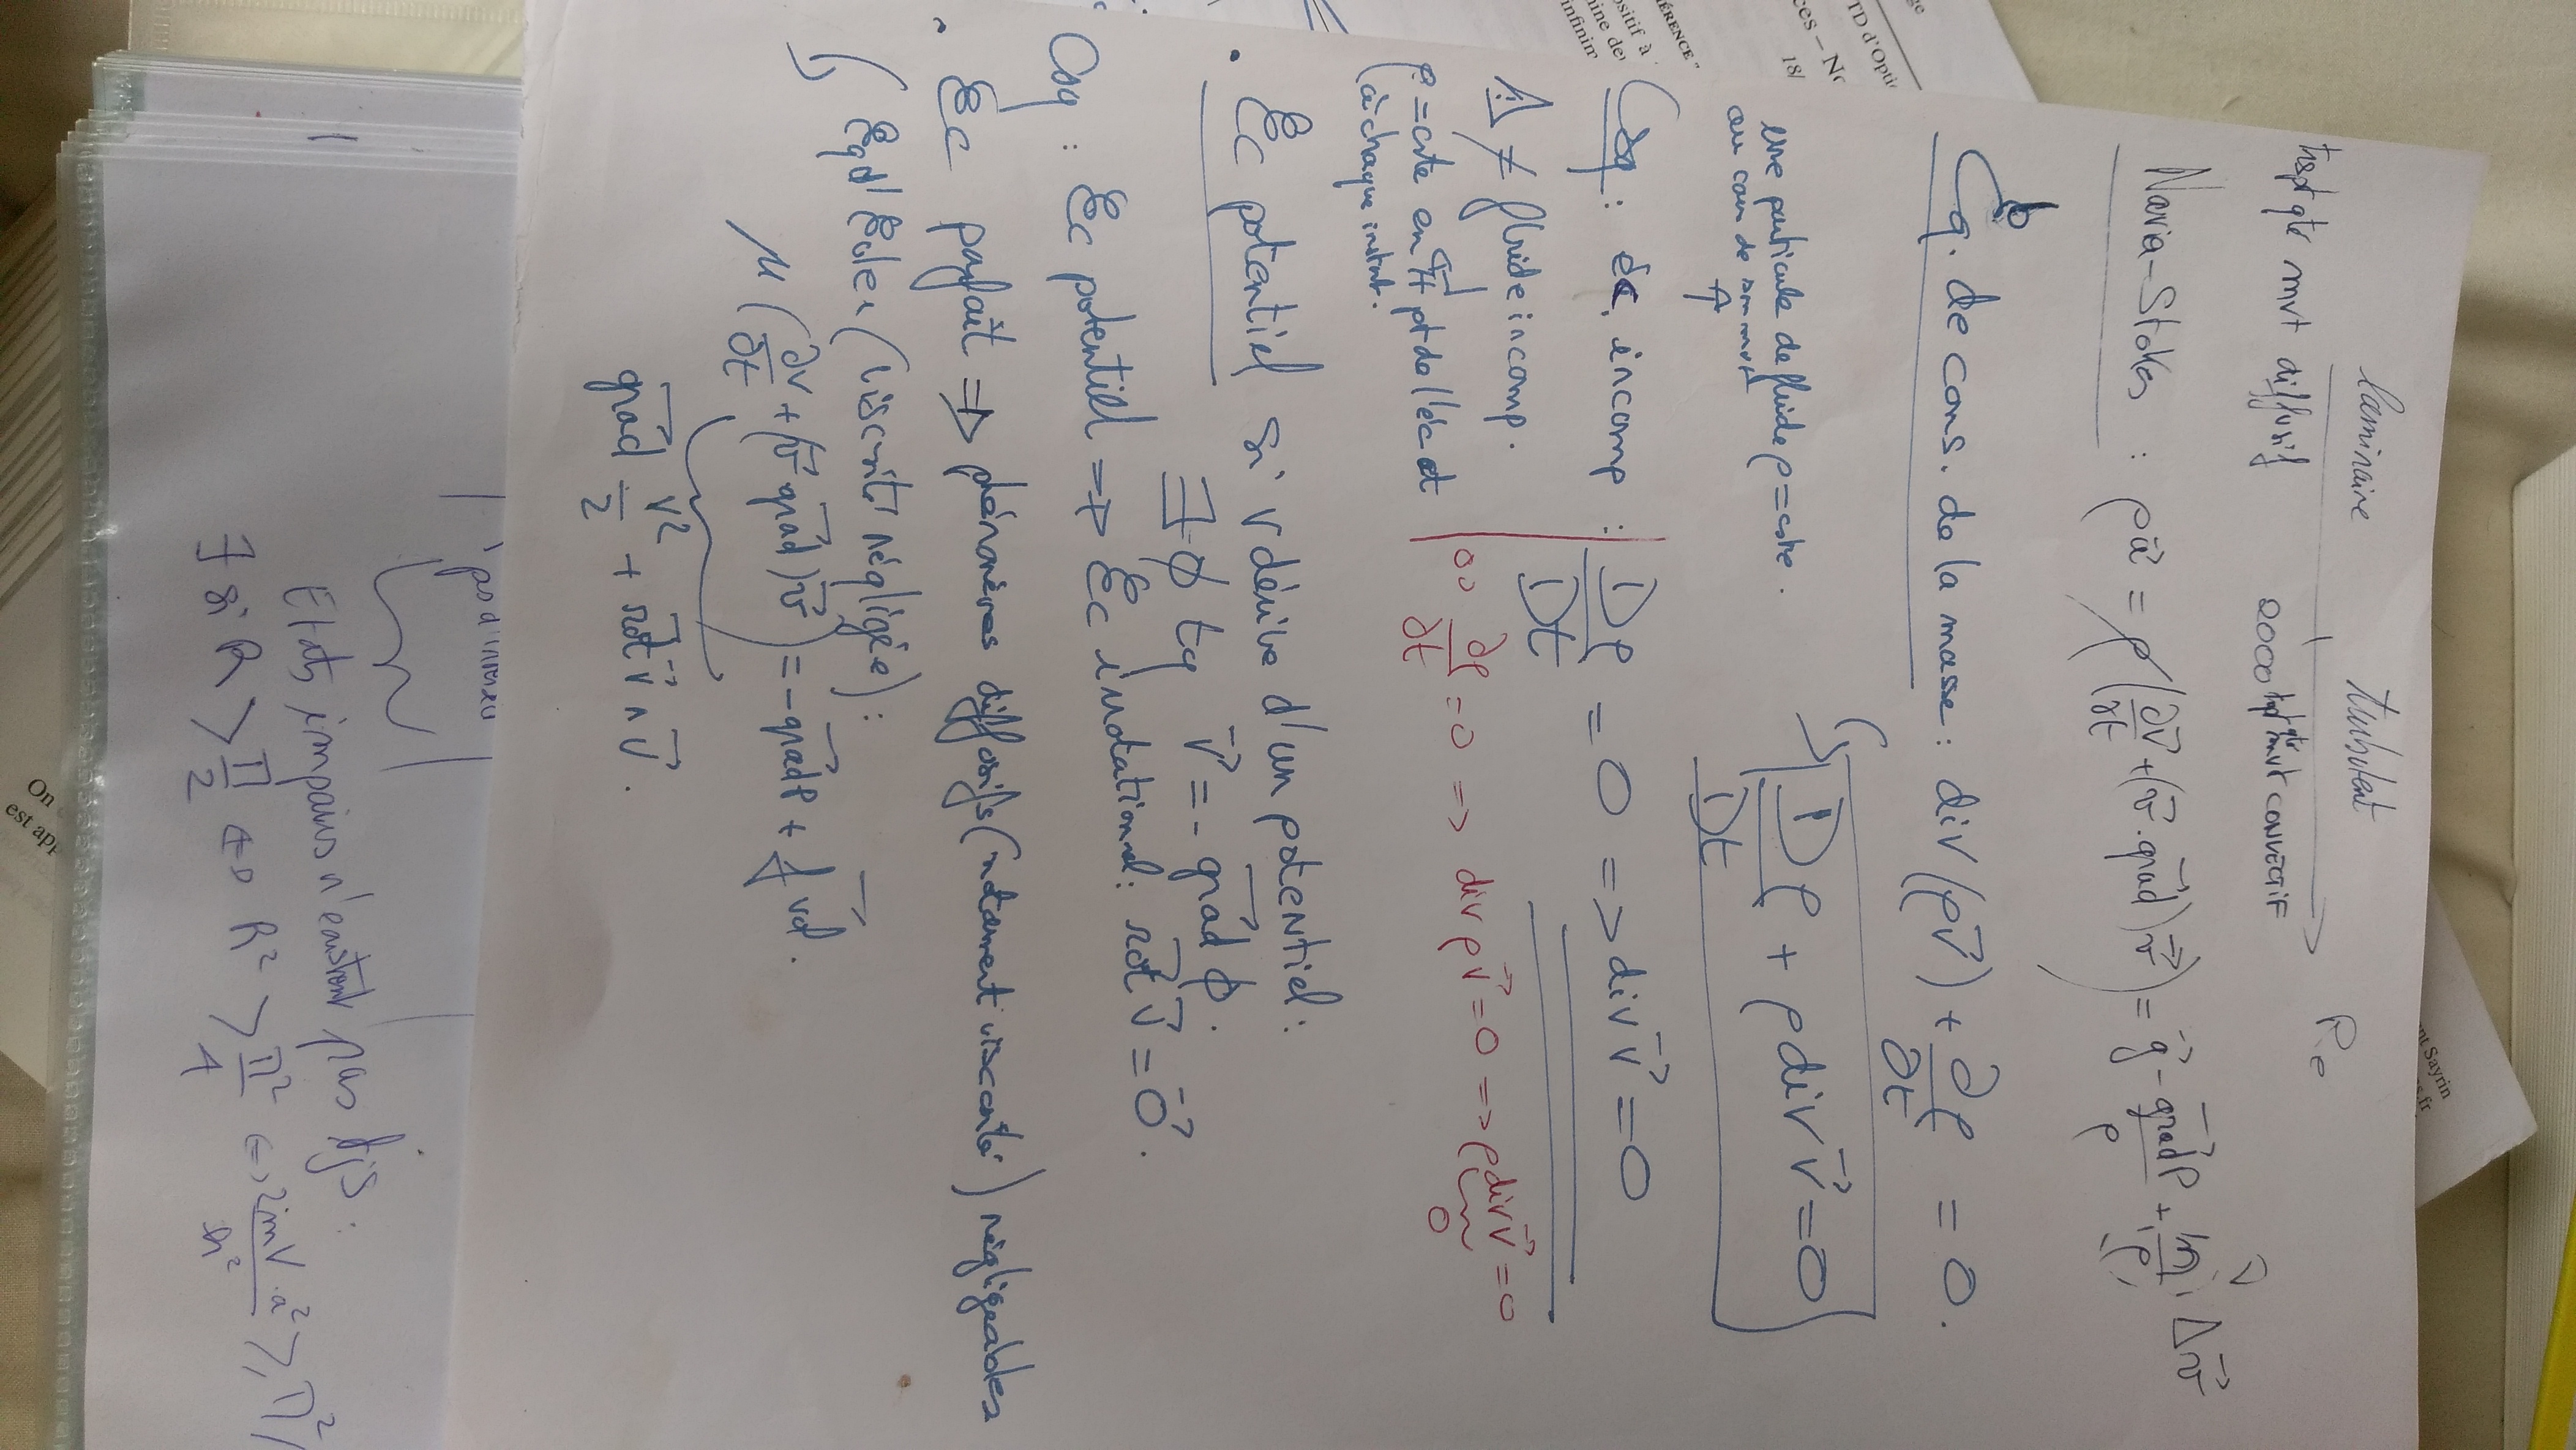 laminaire turbulent Re
2000
trspt qté mvt diffusif trspt qté mvt convectif
Navia-Stokes : ρa⃗ = ρ(∂v⃗/∂t + (v⃗.grad⃗)v⃗) = g⃗ - grad⃗P/ρ + η/ρ Δv⃗
ν
Eq. de cons. de la masse : div(ρv⃗) + ∂ρ/∂t = 0.
Dρ/Dt + ρ div v⃗ = 0
une particule de fluide ρ = cste.
au cours de son mvt
Csq : éc. incomp : Dρ/Dt = 0 => div v⃗ = 0
⚠ ≠ fluide incomp.
ρ = cste en tt pt de l'éc et
(à chaque instant.
∂ρ/∂t = 0 => div ρv⃗ = 0 => ρ div v⃗ = 0
0
• Ec potentiel si v dérive d'un potentiel :
∃ ϕ tq v⃗ = - grad⃗ ϕ.
Csq : Ec potentiel => Ec irrotationnel : rot⃗ v⃗ = 0⃗.
• Ec parfait => phénomènes diffusifs (notamment viscosité) négligeables
Eq d'Euler (viscosité négligée) :
μ(∂v/∂t + (v⃗ grad⃗)v⃗) = - grad⃗P + f⃗ vol.
grad⃗ v²/2 + rot⃗ v⃗ ∧ v⃗.
Etats impairs n'existent pas tjs :
∃ si R > π/2 ⇔ R² > π²/4 ⇔ 2mV.a²/ħ² > π²/
ent Sayrin
s.fr
ge
TD d'Opti
ces – No
18/
ÉRENCE
ositif à
mine de
infinim
On
est app